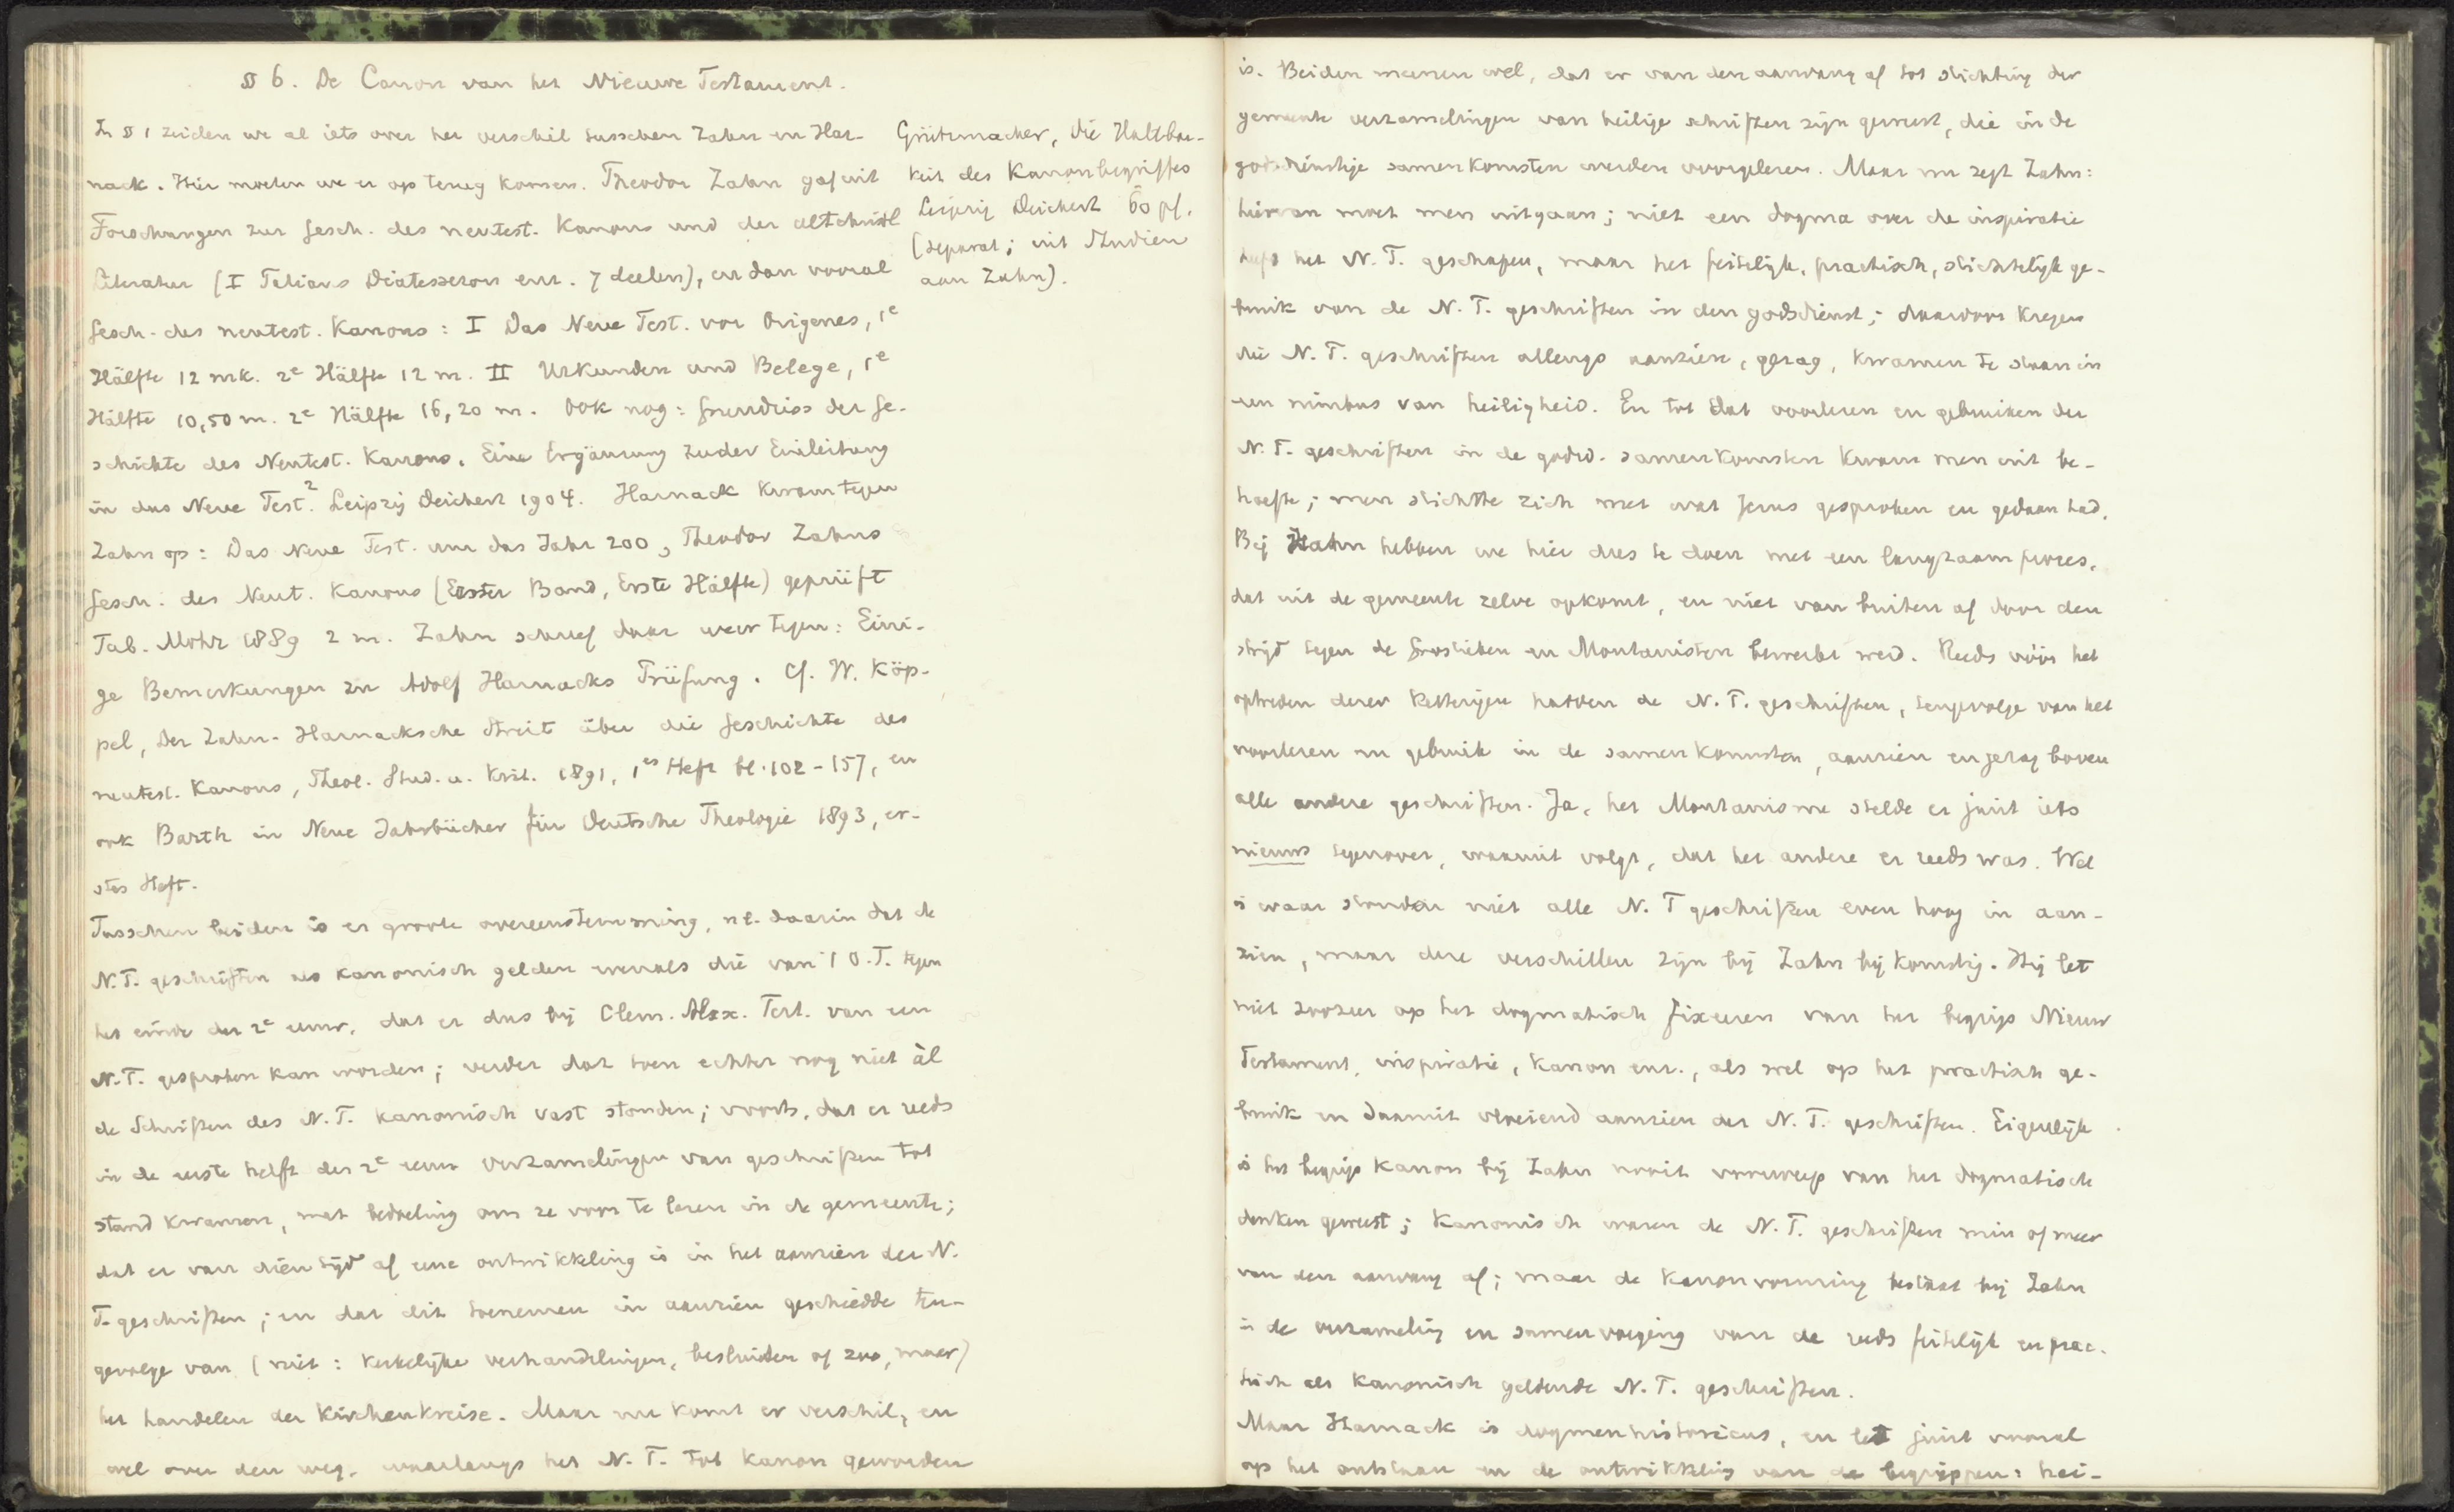 § 6. De Canon van het Nieuwe Testament.
In § 1 zeiden we al iets over het verschil tusschen Zahn en Har-
nack. Hier moeten we er op terug komen. Theodor Zahn gaf uit
Forschungen zur Gesch. des neutest. Kanons und der altchristl
Literatur (I Tatians Diatessaron enz. 7 deelen), en dan vooral
Gesch. des neutest. Kanons: I Das Neue Test. vor Origenes, 1e
Hälfte 12 mk. 2e Hälfte 12 m. II Urkunden und Belege, 1e
Hälfte 10,50 m. 2e Hälfte 16,20 m. Ook nog: Grundriss der Ge-
schichte des Neutest. Kanons. Eine Ergänzung zu der Einleitung
in das Neue Test.2 Leipzig Deichert 1904. Harnack kwam tegen
Zahn op: Das Neue Test. um das Jahr 200, Theodor Zahns
Gesch. des Neut. Kanons (Erster Band, Erste Hälfte) geprüft
Mohr 1889 2 m. Zahn schreef daar weer tegen: Eini-
ge Bemerkungen zu Adolf Harnacks Prüfung. Cf. W. Köp-
pel, Der Zahn-Harnacksche Streit über die Geschichte des
neutest. Kanons, Theol. Stud. u. Krit. 1891, 1es Heft bl. 102-157, en
ook Barth in Neue Jahrbücher für Deutsche Theologie 1893, er-
stes Heft.
Tusschen beiden is er groote overeenstemming, nl. daarin dat de
N.T. geschriften als kanonisch gelden evenals die van 't O.T. tegen
het einde der 2e eeuw, dat er dus bij Clem. Alex. Tert. van een
N.T. gesproken kan worden; verder dat toen echter nog niet àl
de Schriften des N.T. kanonisch vast stonden; voorts, dat er reeds
in de eerste helft der 2e eeuw verzamelingen van geschriften tot
stand kwamen, met bedoeling om ze voor te lezen in de gemeente;
dat er van dien tijd af eene ontwikkeling is in het aanzien der N.
T. geschriften; en dat dit toenemen in aanzien geschiedde ten-
gevolge van (niet: kerkelijke verhandelingen, besluiten of zoo, maar)
het handelen der Kirchenkreise. Maar nu komt er verschil, en
wel over den weg, waarlangs het N.T. tot Kanon geworden
Grützmacher, Die Haltbar-
keit des Kanonbegriffes
Leipzig Deichert 60 pf.
(separat; uit Studien
aan Zahn).
is. Beiden meenen wel, dat er van den aanvang af tot stichting der
gemeente verzamelingen van heilige schriften zijn geweest, die in de
godsdienstige samenkomsten werden voorgelezen. Maar nu zegt Zahn:
hiervan moet men uitgaan; niet een dogma over de inspiratie
heeft het N.T. geschapen, maar het feitelijk, practisch, stichtelijk ge-
bruik van de N.T. geschriften in den godsdienst; daardoor kregen
die N.T. geschriften allengs aanzien, gezag, kwamen te staan in
een nimbus van heiligheid. En tot dat voorlezen en gebruiken der
N.T. geschriften in de godsd. samenkomsten kwam men uit be-
hoefte; men stichtte zich met wat Jezus gesproken en gedaan had.
Bij Zahn hebben we hier dus te doen met een langzaam proces,
dat uit de gemeente zelve opkomt, en niet van buiten af door den
strijd tegen de Gnostieken en Montanisten bewerkt werd. Reeds vóór het
optreden dezer ketterijen hadden de N.T. geschriften, tengevolge van het
voorlezen en gebruik in de samenkomsten, aanzien en gezag boven
alle andere geschriften. Ja, het Montanisme stelde er juist iets
nieuws tegenover, waaruit volgt, dat het andere er reeds was. Wel
is waar stonden niet alle N.T geschriften even hoog in aan-
zien, maar deze verschillen zijn bij Zahn bijkomstig. Hij let
niet zoozeer op het dogmatisch fixeeren van het begrip Nieuw
Testament, inspiratie, Kanon enz., als wel op het practisch ge-
bruik en daaruit vloeiend aanzien der N.T. geschriften. Eigenlijk
is het begrip Kanon bij Zahn nooit voorwerp van het dogmatisch
denken geweest; Kanonisch waren de N.T. geschriften min of meer
van den aanvang af; maar de Kanonvorming bestaat bij Zahn
in de verzameling en samenvoeging van de reeds feitelijk en prac-
tisch als Kanonisch geldende N.T. geschriften.
Maar Harnack is dogmenhistoricus, en let juist vooral
op het ontstaan en de ontwikkeling van de begrippen: hei-